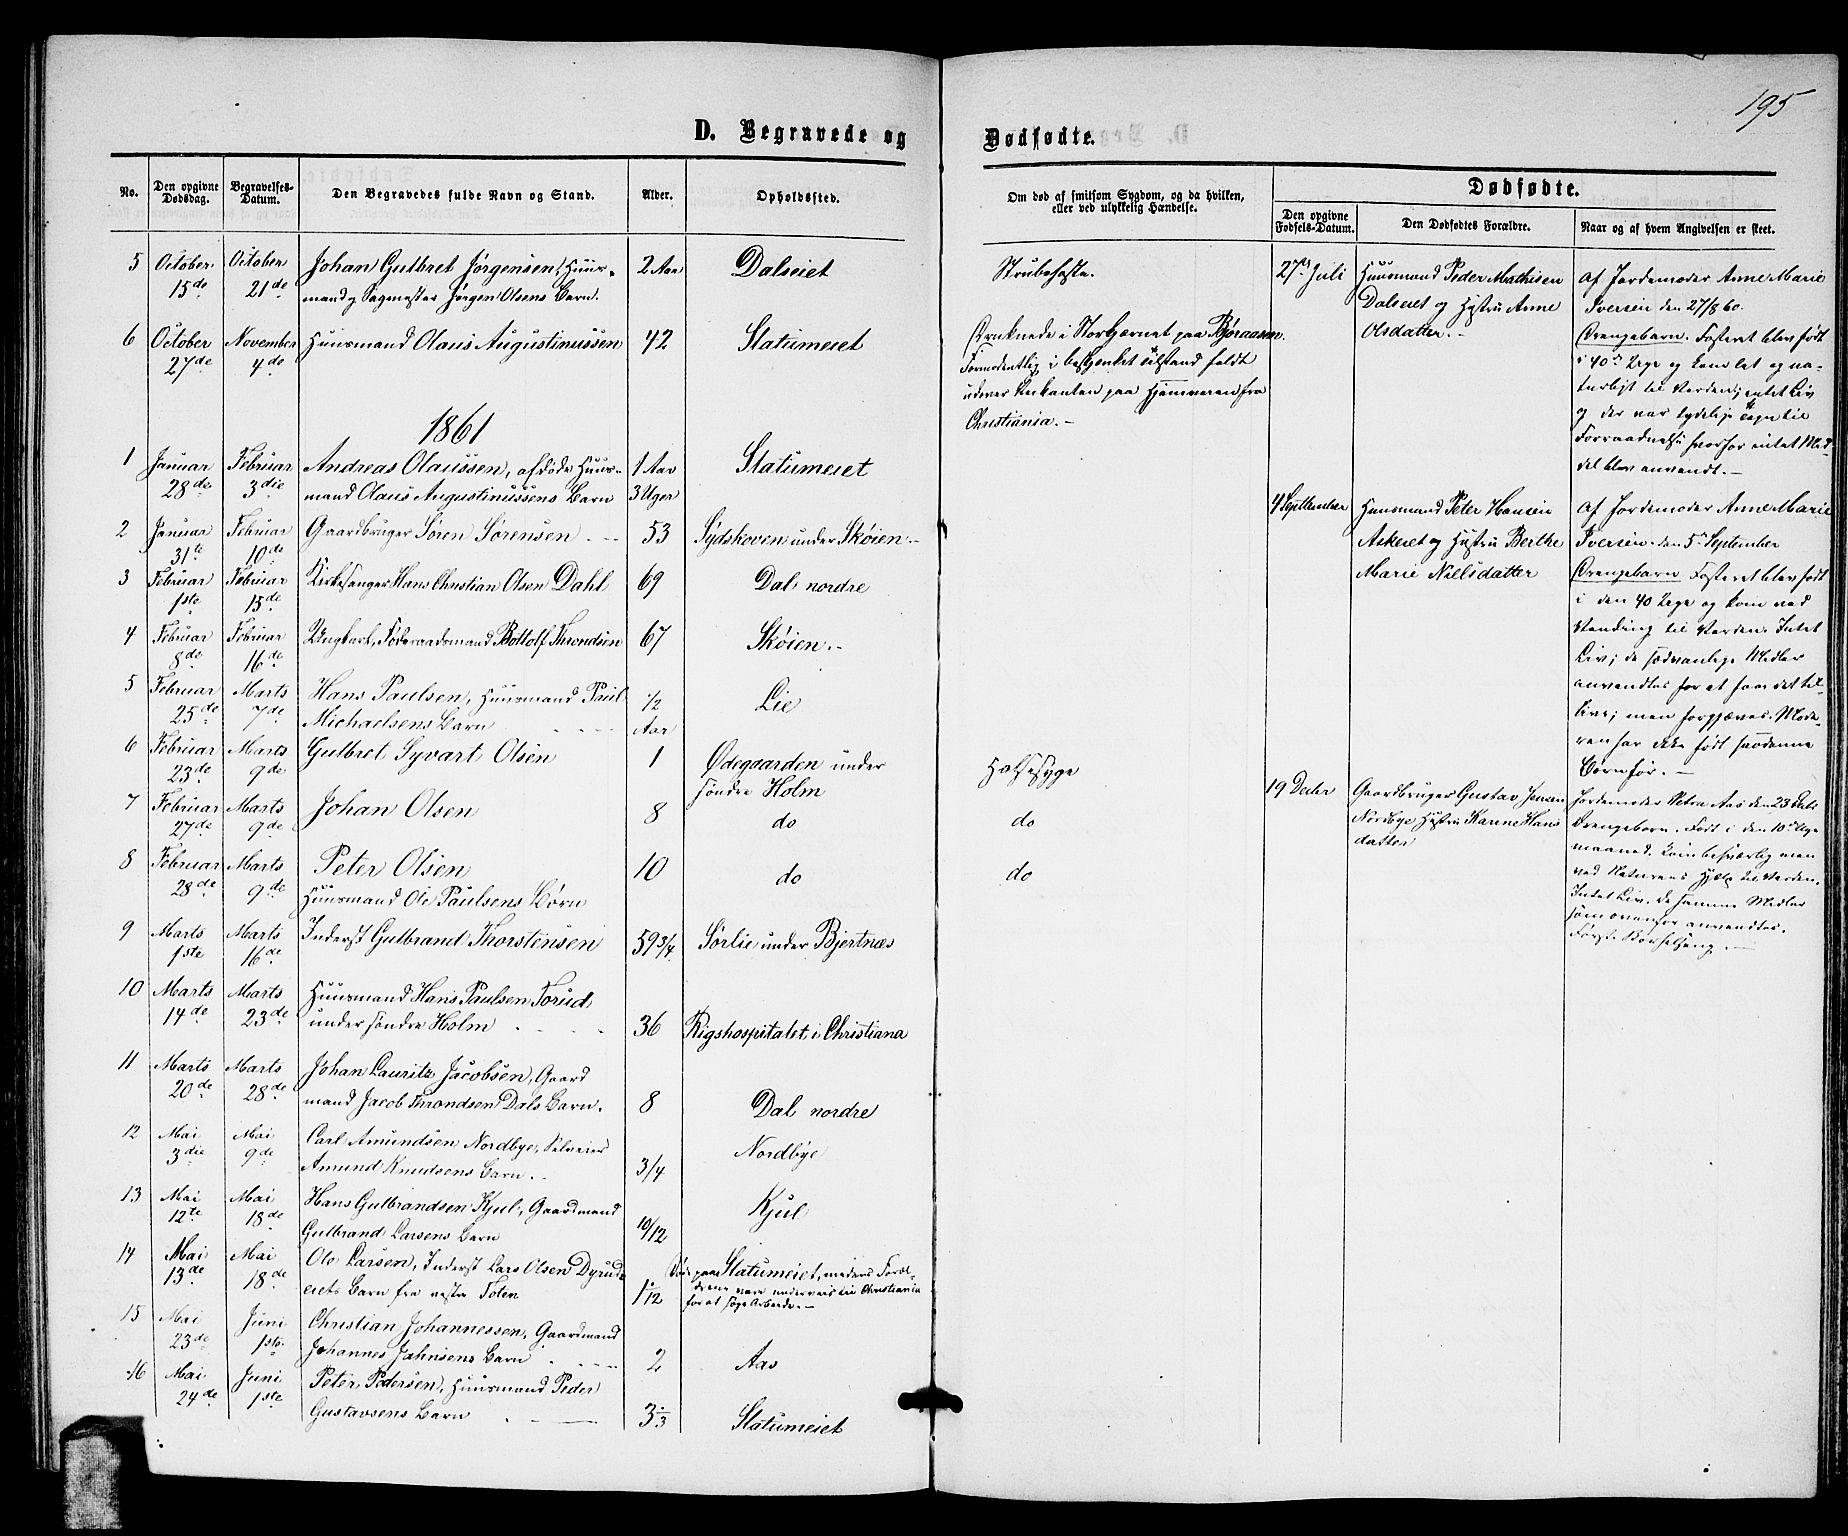 195
D. Begravede og Dødfødte.
No.
Den opgivne Dødsdag.
Begravelses-Datum.
Den Begravedes fulde Navn og Stand.
Alder.
Opholdssted.
Om død af smitsom Sygdom, og da hvilken,
eller ved ulykkelig Hændelse.
Dødfødte.
Den opgivne Fødsels-Datum.
Den Dødfødtes Forældre.
Naar og af hvem Angivelsen er skeet.
5 October October Johan Gulbret Jørgensen, Huus- 2 Aar Dalseiet Strubehoste.
15de 21de mand og Sagmester Jørgen Olsens Barn.
6 October November Huusmand Olaus Augustinussen 42 Statumeiet Druknede i Storkjærnet paa Bjøraasen.
27de 4de Formodentlig i beskjænket Tilstand faldt
udover Iiskanten paa Hjemveien fra
Christiania.-
1861
1 Januar Februar Andreas Olaussen, afdøde Huus- 1 Aar Statumeiet
28de 3die mand Olaus Augustinussens Barn 3 Uger
2 Januar Februar Gaardbruger Søren Sørensen 53 Sydskoven under Skøien.-
31te 10de
3 Februar Februar Kirkesanger Hans Christian Olsen Dahl 69 Dal nordre
1ste 15de
4 Februar Februar Ungkarl, Føderaadsmand Bottolf Throndsen 67 Skøien.-
8de 16de
5 Februar Marts Hans Paulsen, Huusmand Paul 1/2 Lie
25de 7de Michaelsens Barn Aar
6 Februar Marts Gulbret Syvart Olsen 1 Ødegaarden under Halssyge
23de 9de søndre Holm
7 Februar Marts Johan Olsen 8 do do
27de 9de
8 Februar Marts Peter Olsen 10 do do
28de 9de Huusmand Ole Paulsens Børn
9 Marts Marts Inderst Gulbrand Thorstensen 59 3/4 Sørlie under Bjertnæs
1ste 16de
10 Marts Marts Huusmand Hans Paulsen Torud
14de 23de under søndre Holm 36 Rigshospitalet i Christiana
11 Marts Marts Johan Lauritz Jacobsen, Gaard
20de 28de mand Jacob Throndsen Dals Barn. 8 Dal nordre
12 Mai Mai Carl Amundsen Nordbye, Selveier Nordbye
3die 9de Amund Knudsens Barn.- 3/4
13 Mai Mai Hans Gulbrandsen Kjul, Gaardmand Kjul
12te 18de Gulbrand Larsens Barn 10/12
14 Mai Mai Ole Larsen, Inderst Lars Olsen Dyruds- Døde paa Statumeiet, medens Foræl-
13de 18de eiets Barn fra vestre Toten 1/12 drene vare underveis til Christiania
for at søge Arbeide.-
15 Mai Juni Christian Johannessen, Gaardmand
23de 1ste Johannes Jahnsens Barn 2 Aas
16 Mai Juni Peter Pedersen, Huusmand Peder
24de 1ste Gustavsens Barn 3 Statumeiet
27de Juli
Huusmand Peder Mathisen
Dalseiet og Hustru Anne
Olsdatter.-
Af Jordemoder Anne Marie
Iversen den 27/8 60.
Drengebarn. Fosteret blev født
i 40de Uge og kom let og na-
turligt til Verden; intet Liv
og der var tydelige Tegn til
Forraadnelse hvorfor intet Mid
del blev anvendt.-
4 Septtember
Huusmand Peter Hansen
Askeiet og Hustru Berthe
Marie Nielsdatter
Af Jordemoder Anne Marie
Iversen den 5te September
Drengebarn Fosteret blev født
i den 40 Uge og kom ved
Vending til Verden. Intet
Liv; de sædvanlige Midler
anvendtes for at faae det til
live; men forgjæves. Mode-
ren har ikke født saadanne
Børn før.-
19 Decbr
Gaardbruger Gustav Jensen
Nordbye Hustru Karine Hans
datter
Jordemoder Petra Aas den 23 Febr
Drengebarn. Født i den 10de Uge
maaned. Kom besværlig men
ved Naturens Hjælp til Verden.
Intet Liv. de samme Midler
som ovenfor anvendtes.
Første Barselseng.-